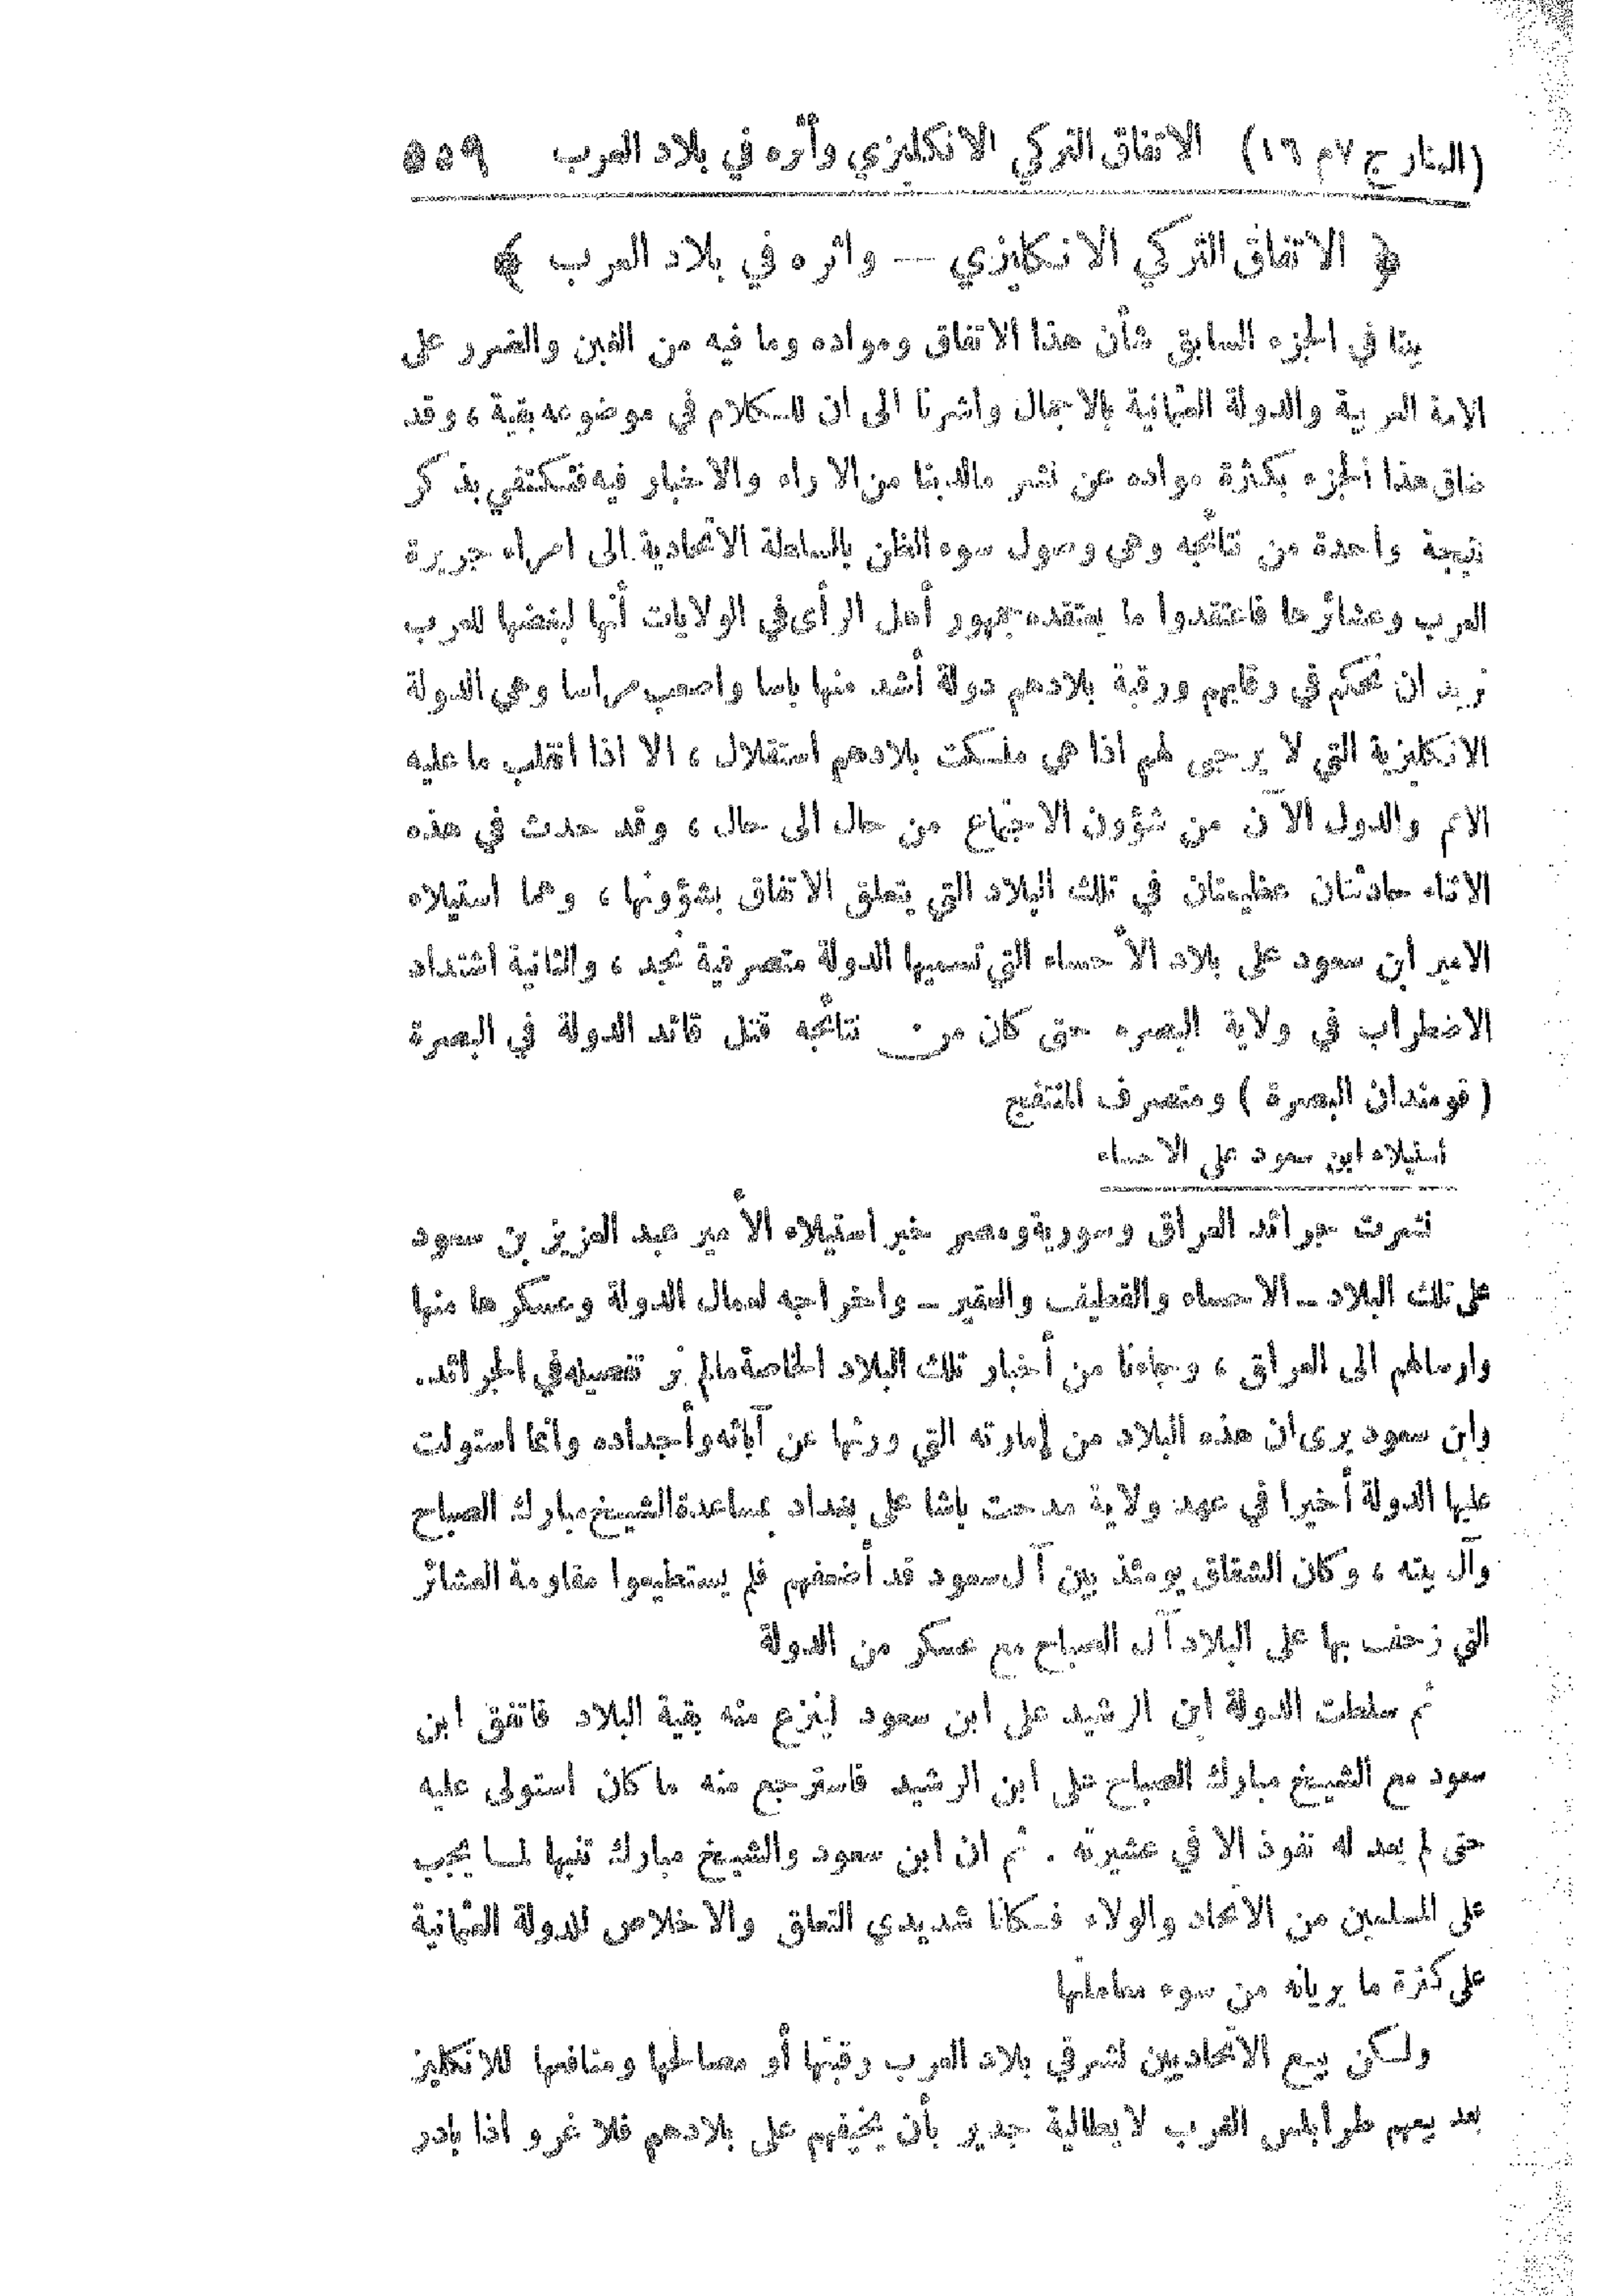 (المنار ج ٧ م ١٦) الاتفاق التركي الانكليزي وأثره في بلاد العرب ٥٥٩
﴿ الاتفاق التركي الانكليزي — واثره في بلاد العرب ﴾
بينا في الجزء السابق شأن هذا الاتفاق ومواده وما فيه من الغبن والضرر على
الامة العربية والدولة العثمانية بالاجمال واشرنا الى ان للكلام في موضوعه بقية ، وقد
ضاق هذا الجزء بكثرة مواده عن نشر مالدينا من الاراء والاخبار فيه فنكتفي بذكر
نتيجة واحدة من نتائجه وهي وصول سوء الظن بالسلطة الاتحادية الى امراء جزيرة
العرب وعشائرها فاعتقدوا ما يعتقده جمهور أهل الرأى في الولايات أنها لبغضها للعرب
تريد ان تحكم في رقابهم ورقبة بلادهم دولة أشد منها باسا واصعب مراسا وهي الدولة
الانكليزية التي لا يرجى لهم اذا هي ملكت بلادهم استقلال ، الا اذا انقلب ما عليه
الامم والدول الآن من شؤون الاجتماع من حال الى حال ، وقد حدث في هذه
الاثناء حادثتان عظيمتان في تلك البلاد التي يتعلق الاتفاق بشؤونها ، وهما استيلاء
الامير ابن سعود على بلاد الأحساء التي تسميها الدولة متصرفية نجد ، والثانية اشتداد
الاضطراب في ولاية البصره حتى كان من نتائجه قتل قائد الدولة في البصرة
( قومندان البصرة ) ومتصرف المنتفج
استيلاء ابن سعود على الاحساء
نشرت جرائد العراق وسورية ومصر خبر استيلاء الأمير عبد العزيز بن سعود
على تلك البلاد ــ الاحساء والقطيف والعقير ــ واخراجه لعمال الدولة وعسكرها منها
وارسالهم الى العراق ، وجاءنا من أخبار تلك البلاد الخاصة مالم نر تفصيله في الجرائد.
وابن سعود يرى ان هذه البلاد من إمارته التي ورثها عن آبائه وأجداده وانما استولت
عليها الدولة أخيرا في عهد ولاية مدحت باشا على بغداد بمساعدة الشيخ مبارك الصباح
وآل بيته ، وكان الشقاق يومئذ بين آل سعود قد أضعفهم فلم يستطيعوا مقاومة العشائر
التي زحف بها على البلاد آل الصباح مع عسكر من الدولة
ثم سلطت الدولة ابن الرشيد على ابن سعود لينزع منه بقية البلاد فاتفق ابن
سعود مع الشيخ مبارك الصباح على ابن الرشيد فاسترجع منه ما كان استولى عليه
حتى لم يعد له نفوذ الا في عشيرته . ثم ان ابن سعود والشيخ مبارك تنبها لما يجب
على المسلمين من الاتحاد والولاء فكانا شديدي التعلق والاخلاص للدولة العثمانية
على كثرة ما يريانه من سوء معاملتها
ولكن بيع الاتحاديين لشرقي بلاد العرب رقبتها أو مصالحها ومنافعها للانكليز
بعد بيعهم طرابلس الغرب لايطالية جدير بأن يخيفهم على بلادهم فلا غرو اذا بادر